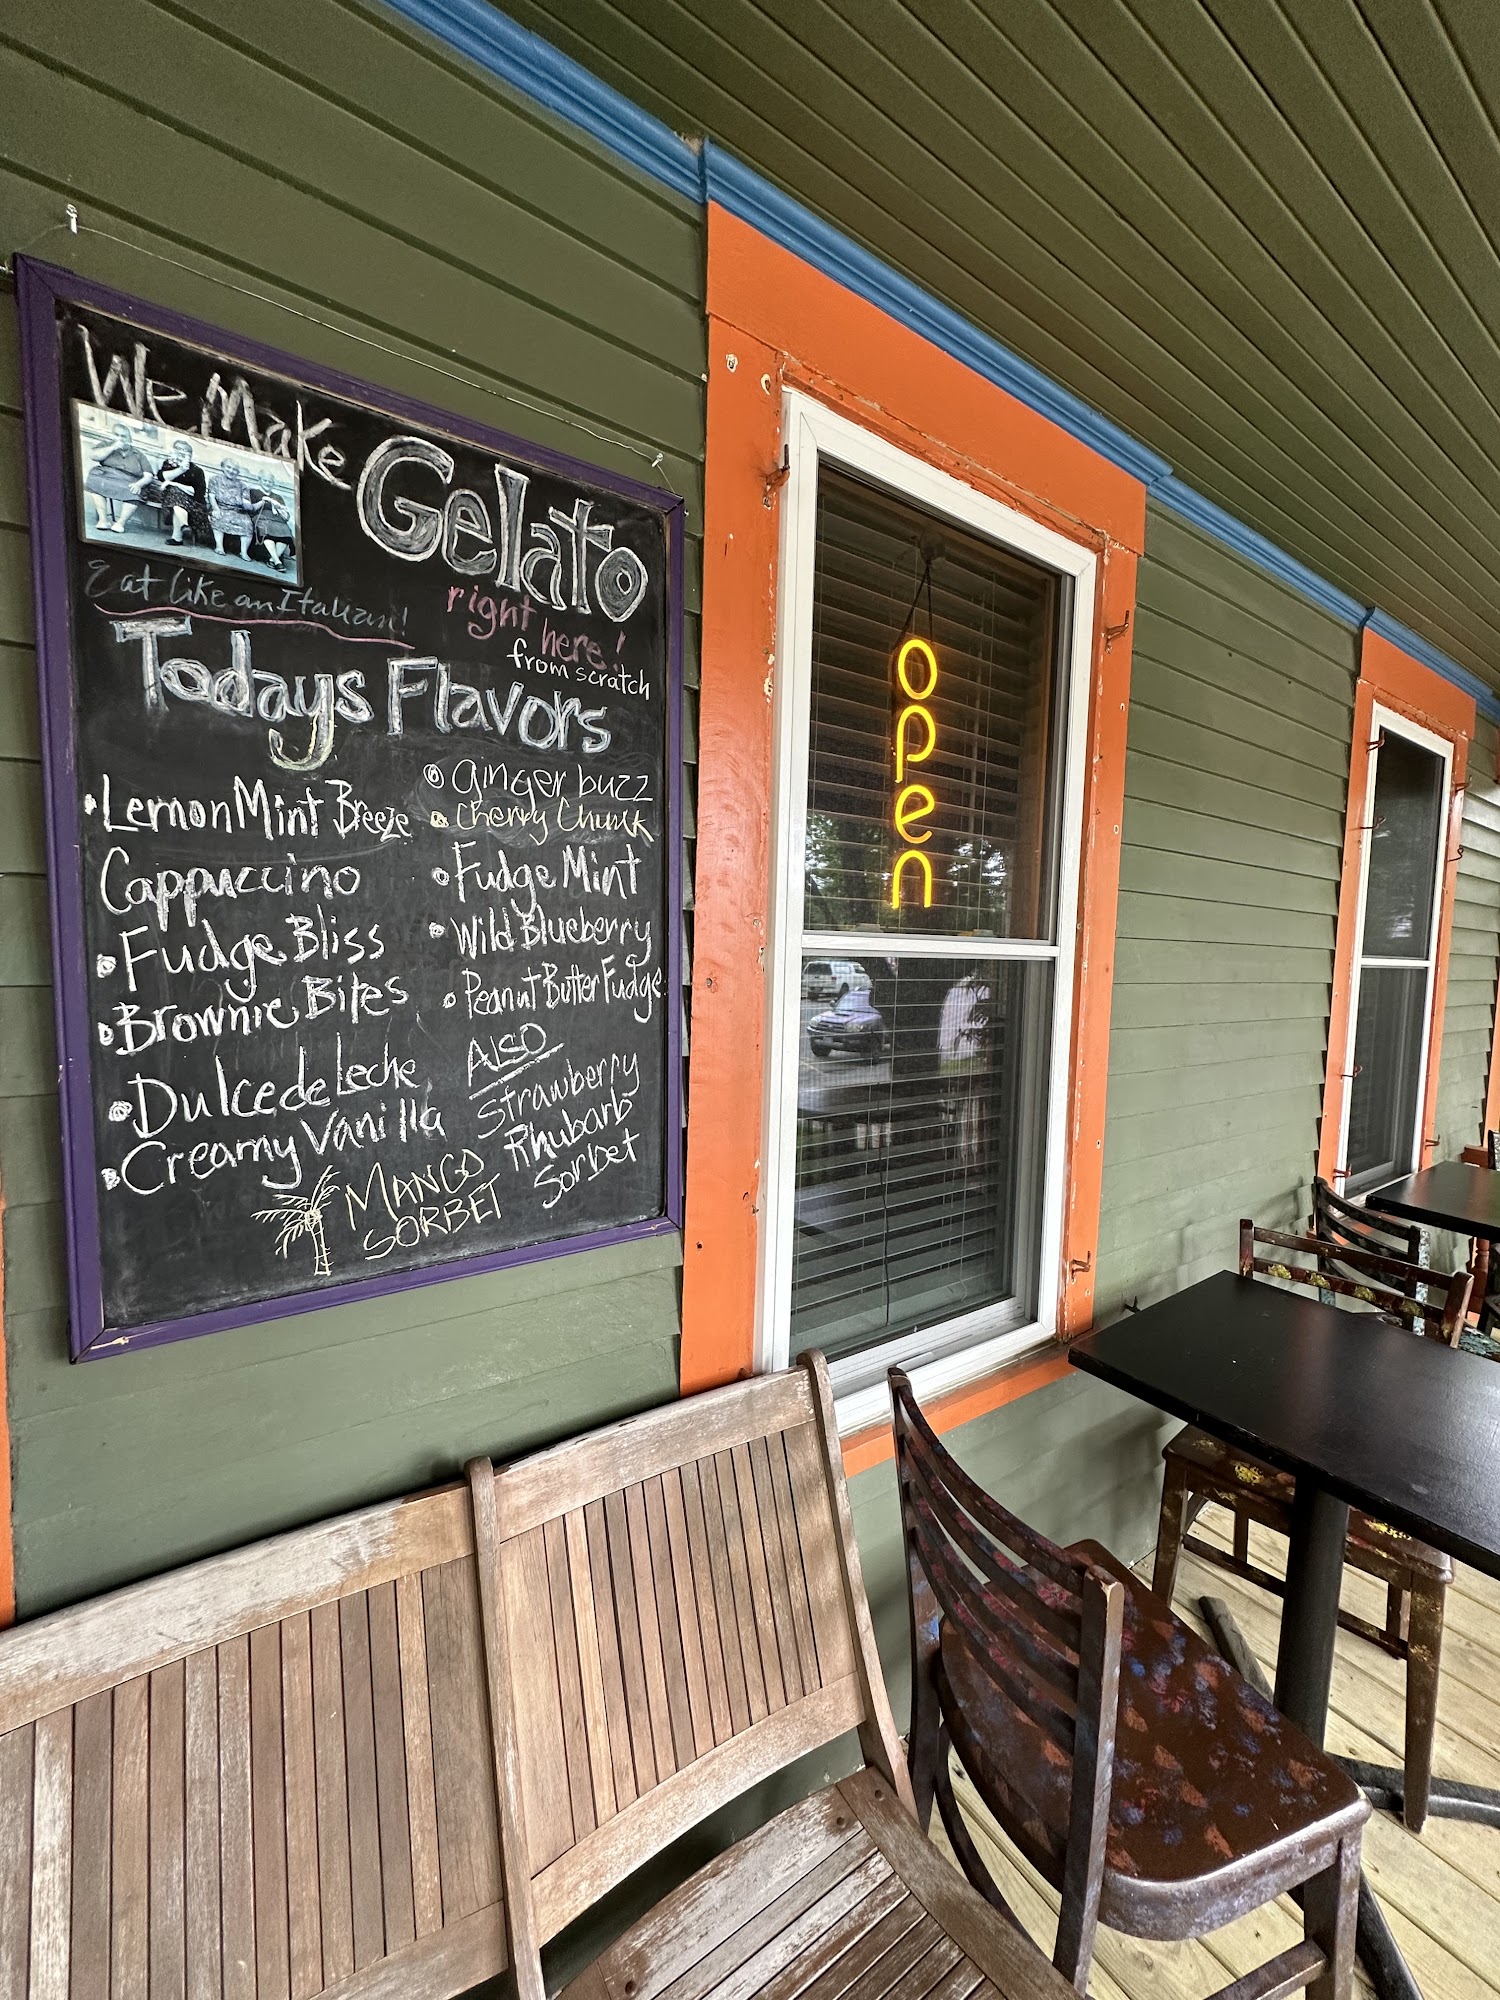 We Make
Gelato
right here!
from scratch
Eat like an Italian!
Todays Flavors
Lemon Mint Breeze
Cappuccino
Fudge Bliss
Brownie Bites
Dulce de Leche
Creamy Vanilla
ginger buzz
Cherry Chunk
Fudge Mint
Wild Blueberry
Peanut Butter Fudge
ALSO
Strawberry
Rhubarb
Sorbet
MANGO
SORBET
open